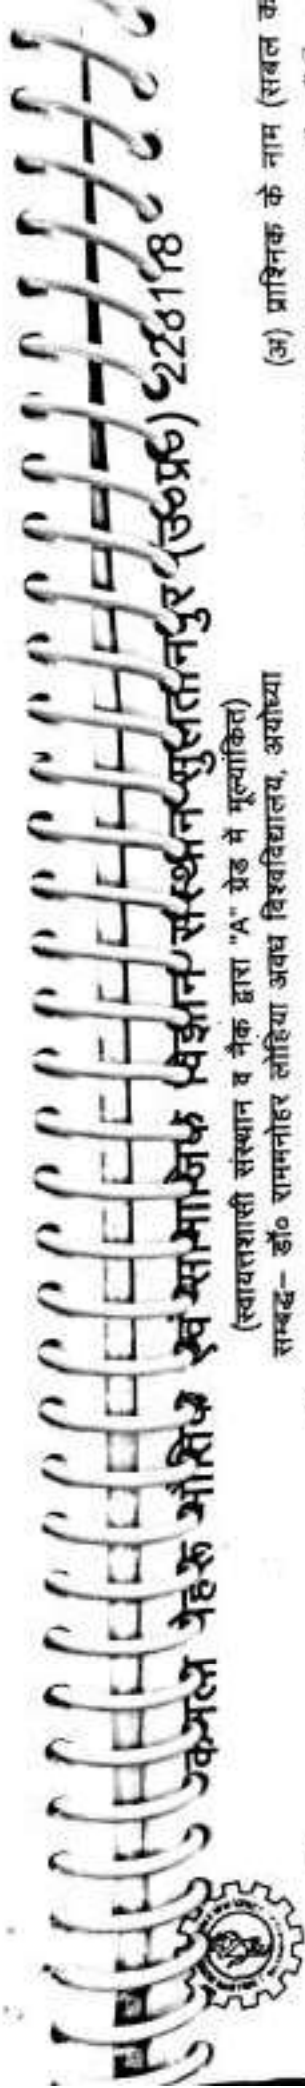 कमला नेहरू भौतिक एवं सामाजिक विज्ञान संस्थान सुलतानपुर (उ०प्र०) 228118
(स्वायत्तशासी संस्थान व नैक द्वारा "A" ग्रेड में मूल्यांकित)
सम्बद्ध– डॉ० राममनोहर लोहिया अवध विश्वविद्यालय, अयोध्या
(अ) प्राश्निक के नाम (सबल